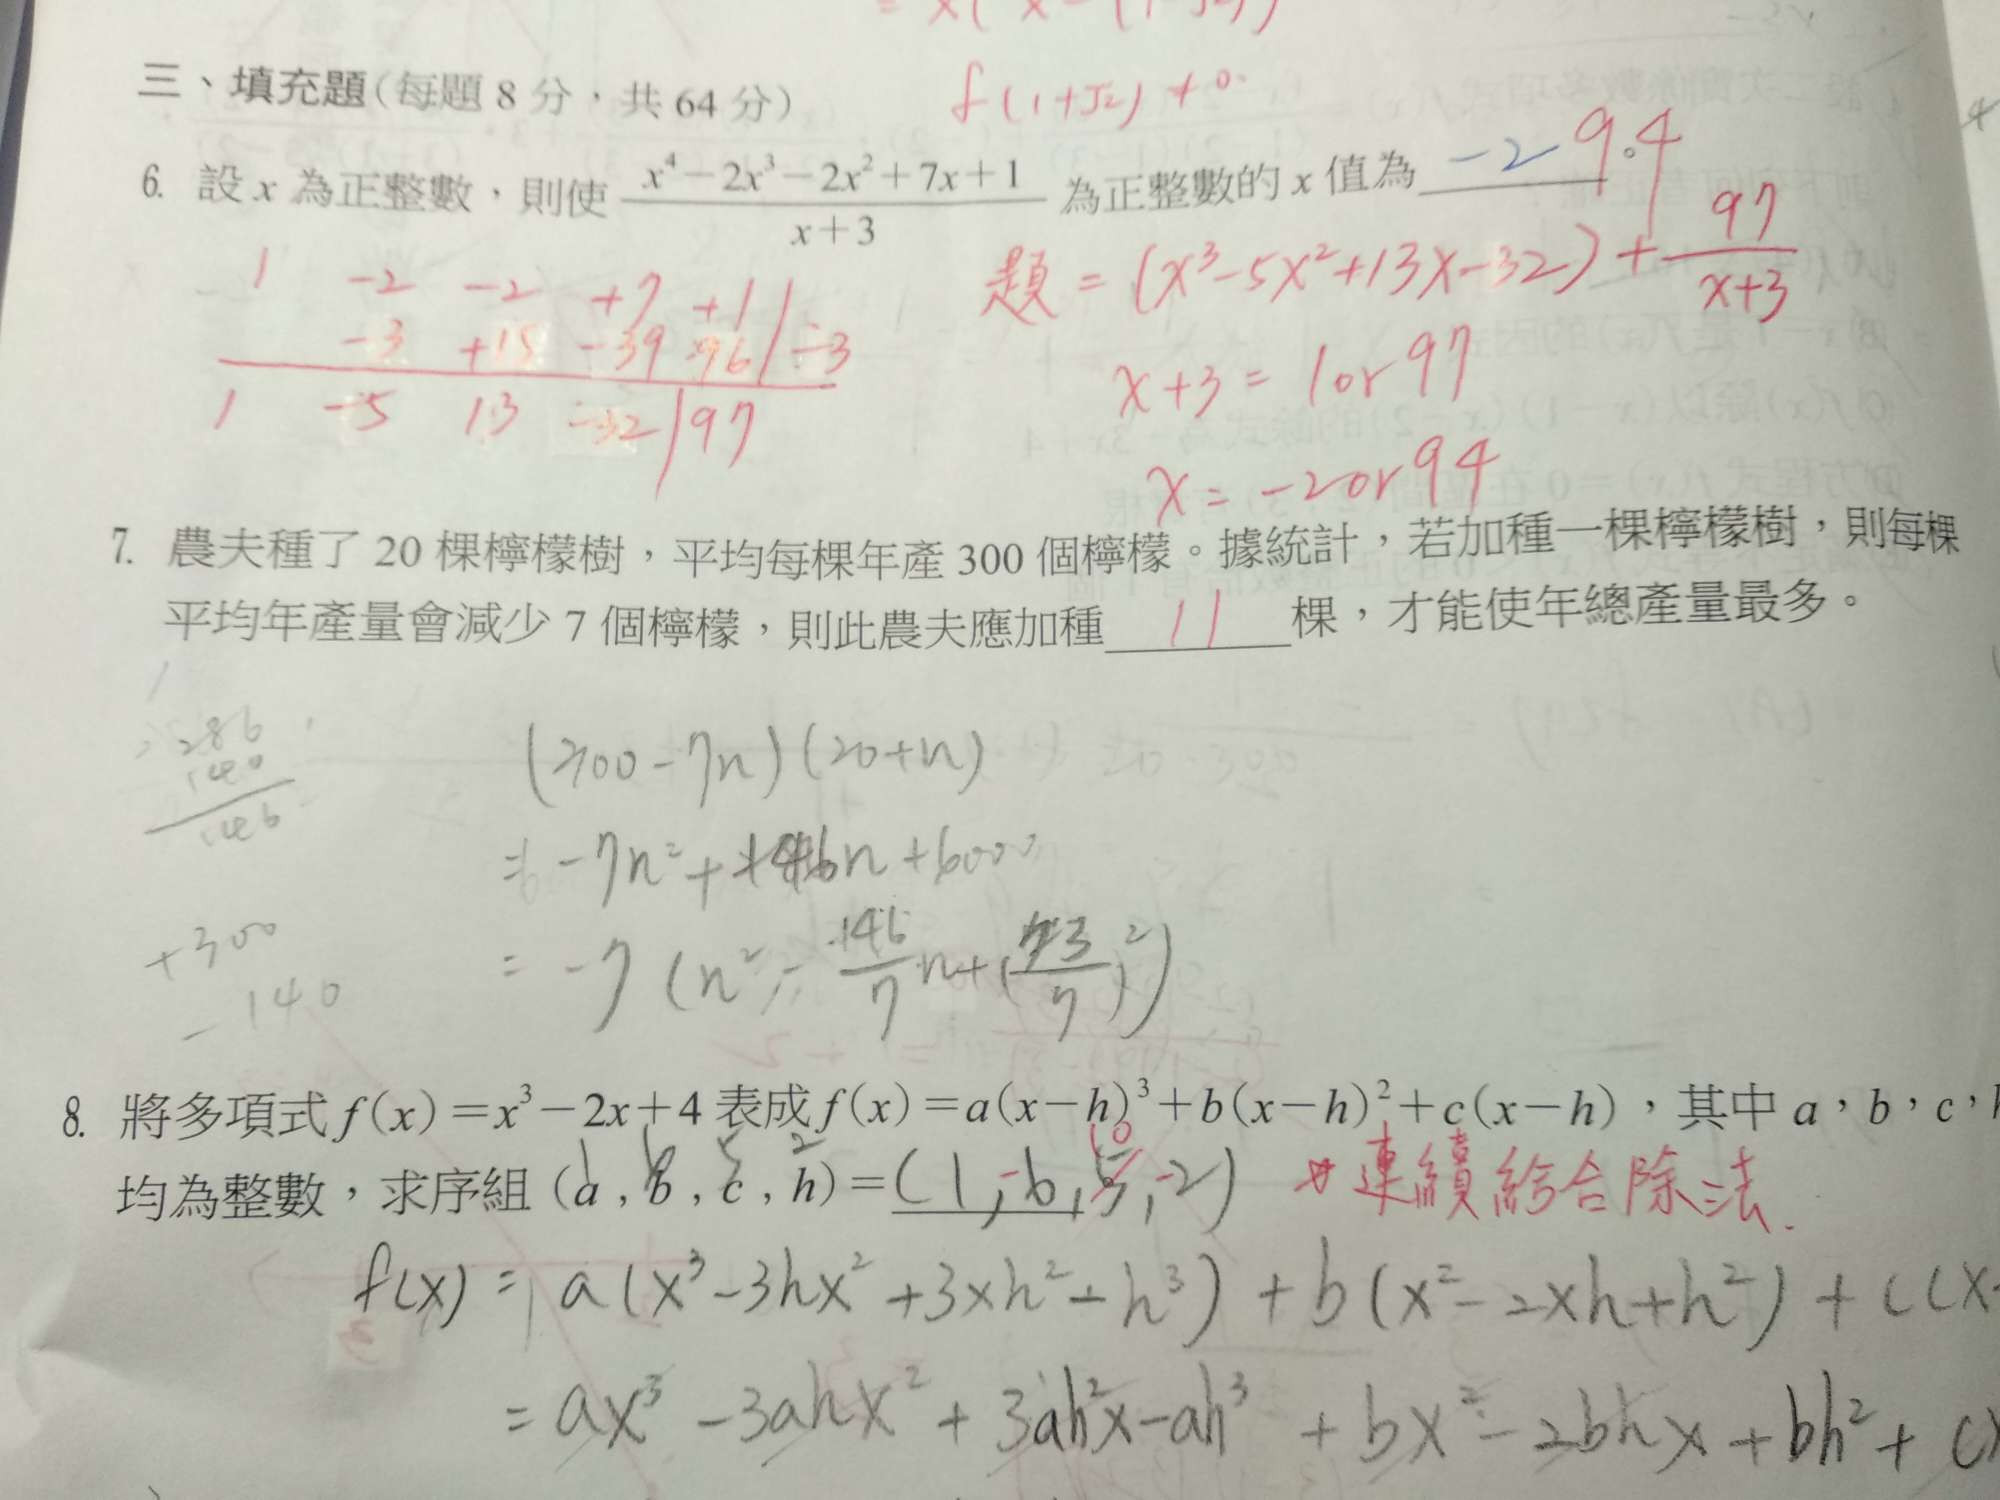 三、填充題(每題 8 分，共 64 分)
f(1+√2) ≠ 0.
6. 設 x 為正整數，則使 (x⁴－2x³－2x²＋7x＋1)/(x＋3) 為正整數的 x 值為 -2 94 。
1 -2 -2 +7 +1
-3 +15 -39 96 -3
1 -5 13 -32 97
題 = (x³-5x²+13x-32) + 97/(x+3)
x+3 = 1 or 97
x = -2 or 94
7. 農夫種了 20 棵檸檬樹，平均每棵年產 300 個檸檬。據統計，若加種一棵檸檬樹，則每棵
平均年產量會減少 7 個檸檬，則此農夫應加種 11 棵，才能使年總產量最多。
286
140
146
(300-7n)(20+n)
= -7n² + 146n + 6000
+300
-140
= -7(n² - 146/7 n + (73/7)²)
8. 將多項式 f(x)＝x³－2x＋4 表成 f(x)＝a(x－h)³＋b(x－h)²＋c(x－h)，其中 a，b，c，
均為整數，求序組 (a , b , c , h)＝(1,-6, 10, -2) 連續綜合除法.
f(x) = a(x³-3hx²+3xh²-h³) + b(x²-2xh+h²) + c(x-
= ax³ -3ahx² + 3ah²x - ah³ + bx² - 2bhx + bh² + cx